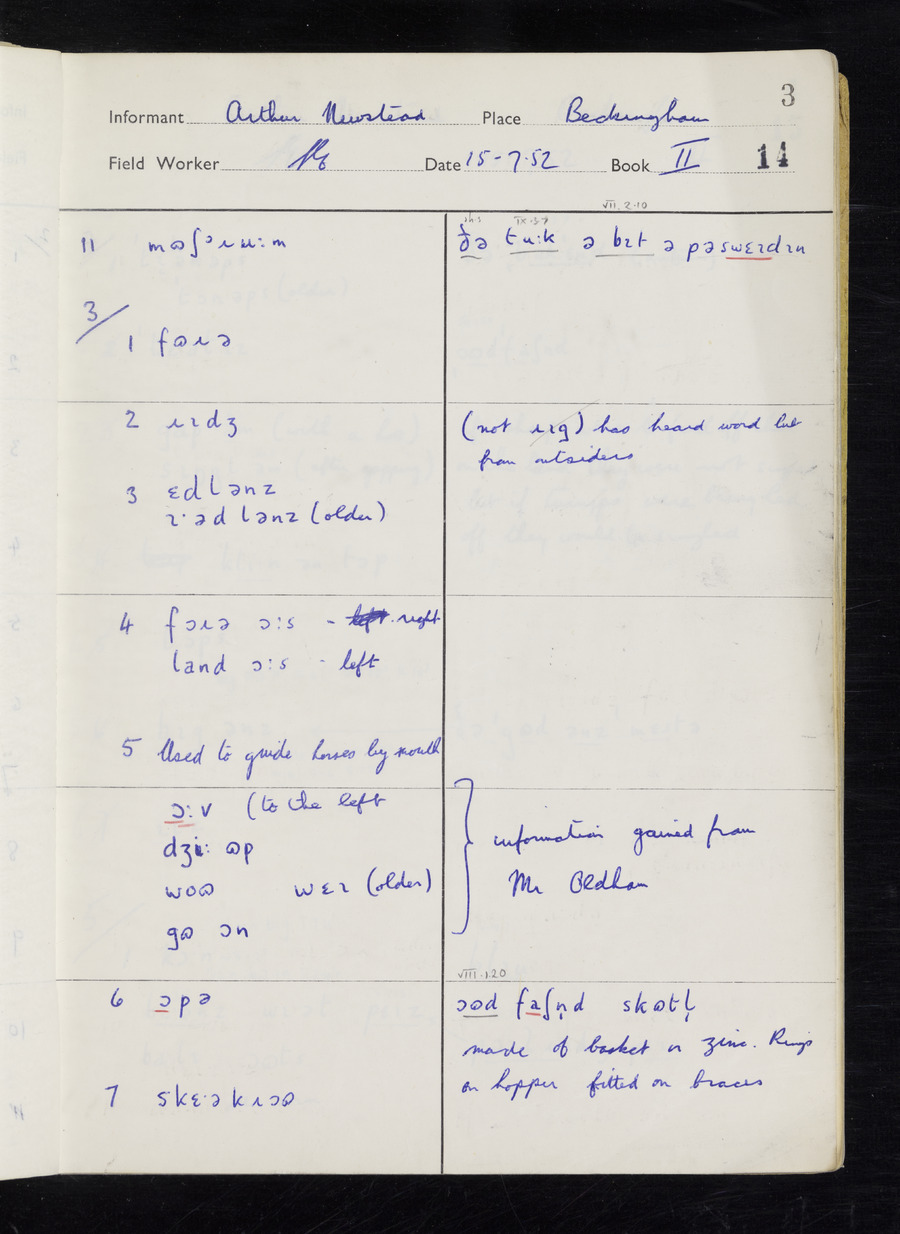 3
Informant Arthur Newstead Place Beckingham
Field Worker Date 15-7-52 Book II 14
VII.2.10
IX.3.7
11 mɷʃᵊɹuːm ðə tuːk ə bɪt ə pəswɛɪdɪn
3/
1 fɷɹə
2 ɹɪdʒ (not ɹɪg) has heard word but
from outsiders
3 ɛdlənz
ɪ·ədlənz (older)
4 fɔɹə ɔːs - left right
land ɔːs - left
5 Used to guide horses by mouth
ɔːv (to the left
dʒiː ɷp information gained from
woɷ wɛɪ (older) Mr Oldham
gɷ ɔn
VIII.1.20
6 ɔpə ɔɷd faʃn̩d skɷtl̩
made of basket or zinc. Rings
on hopper fitted on braces
7 skɛːəkɹɔɷ